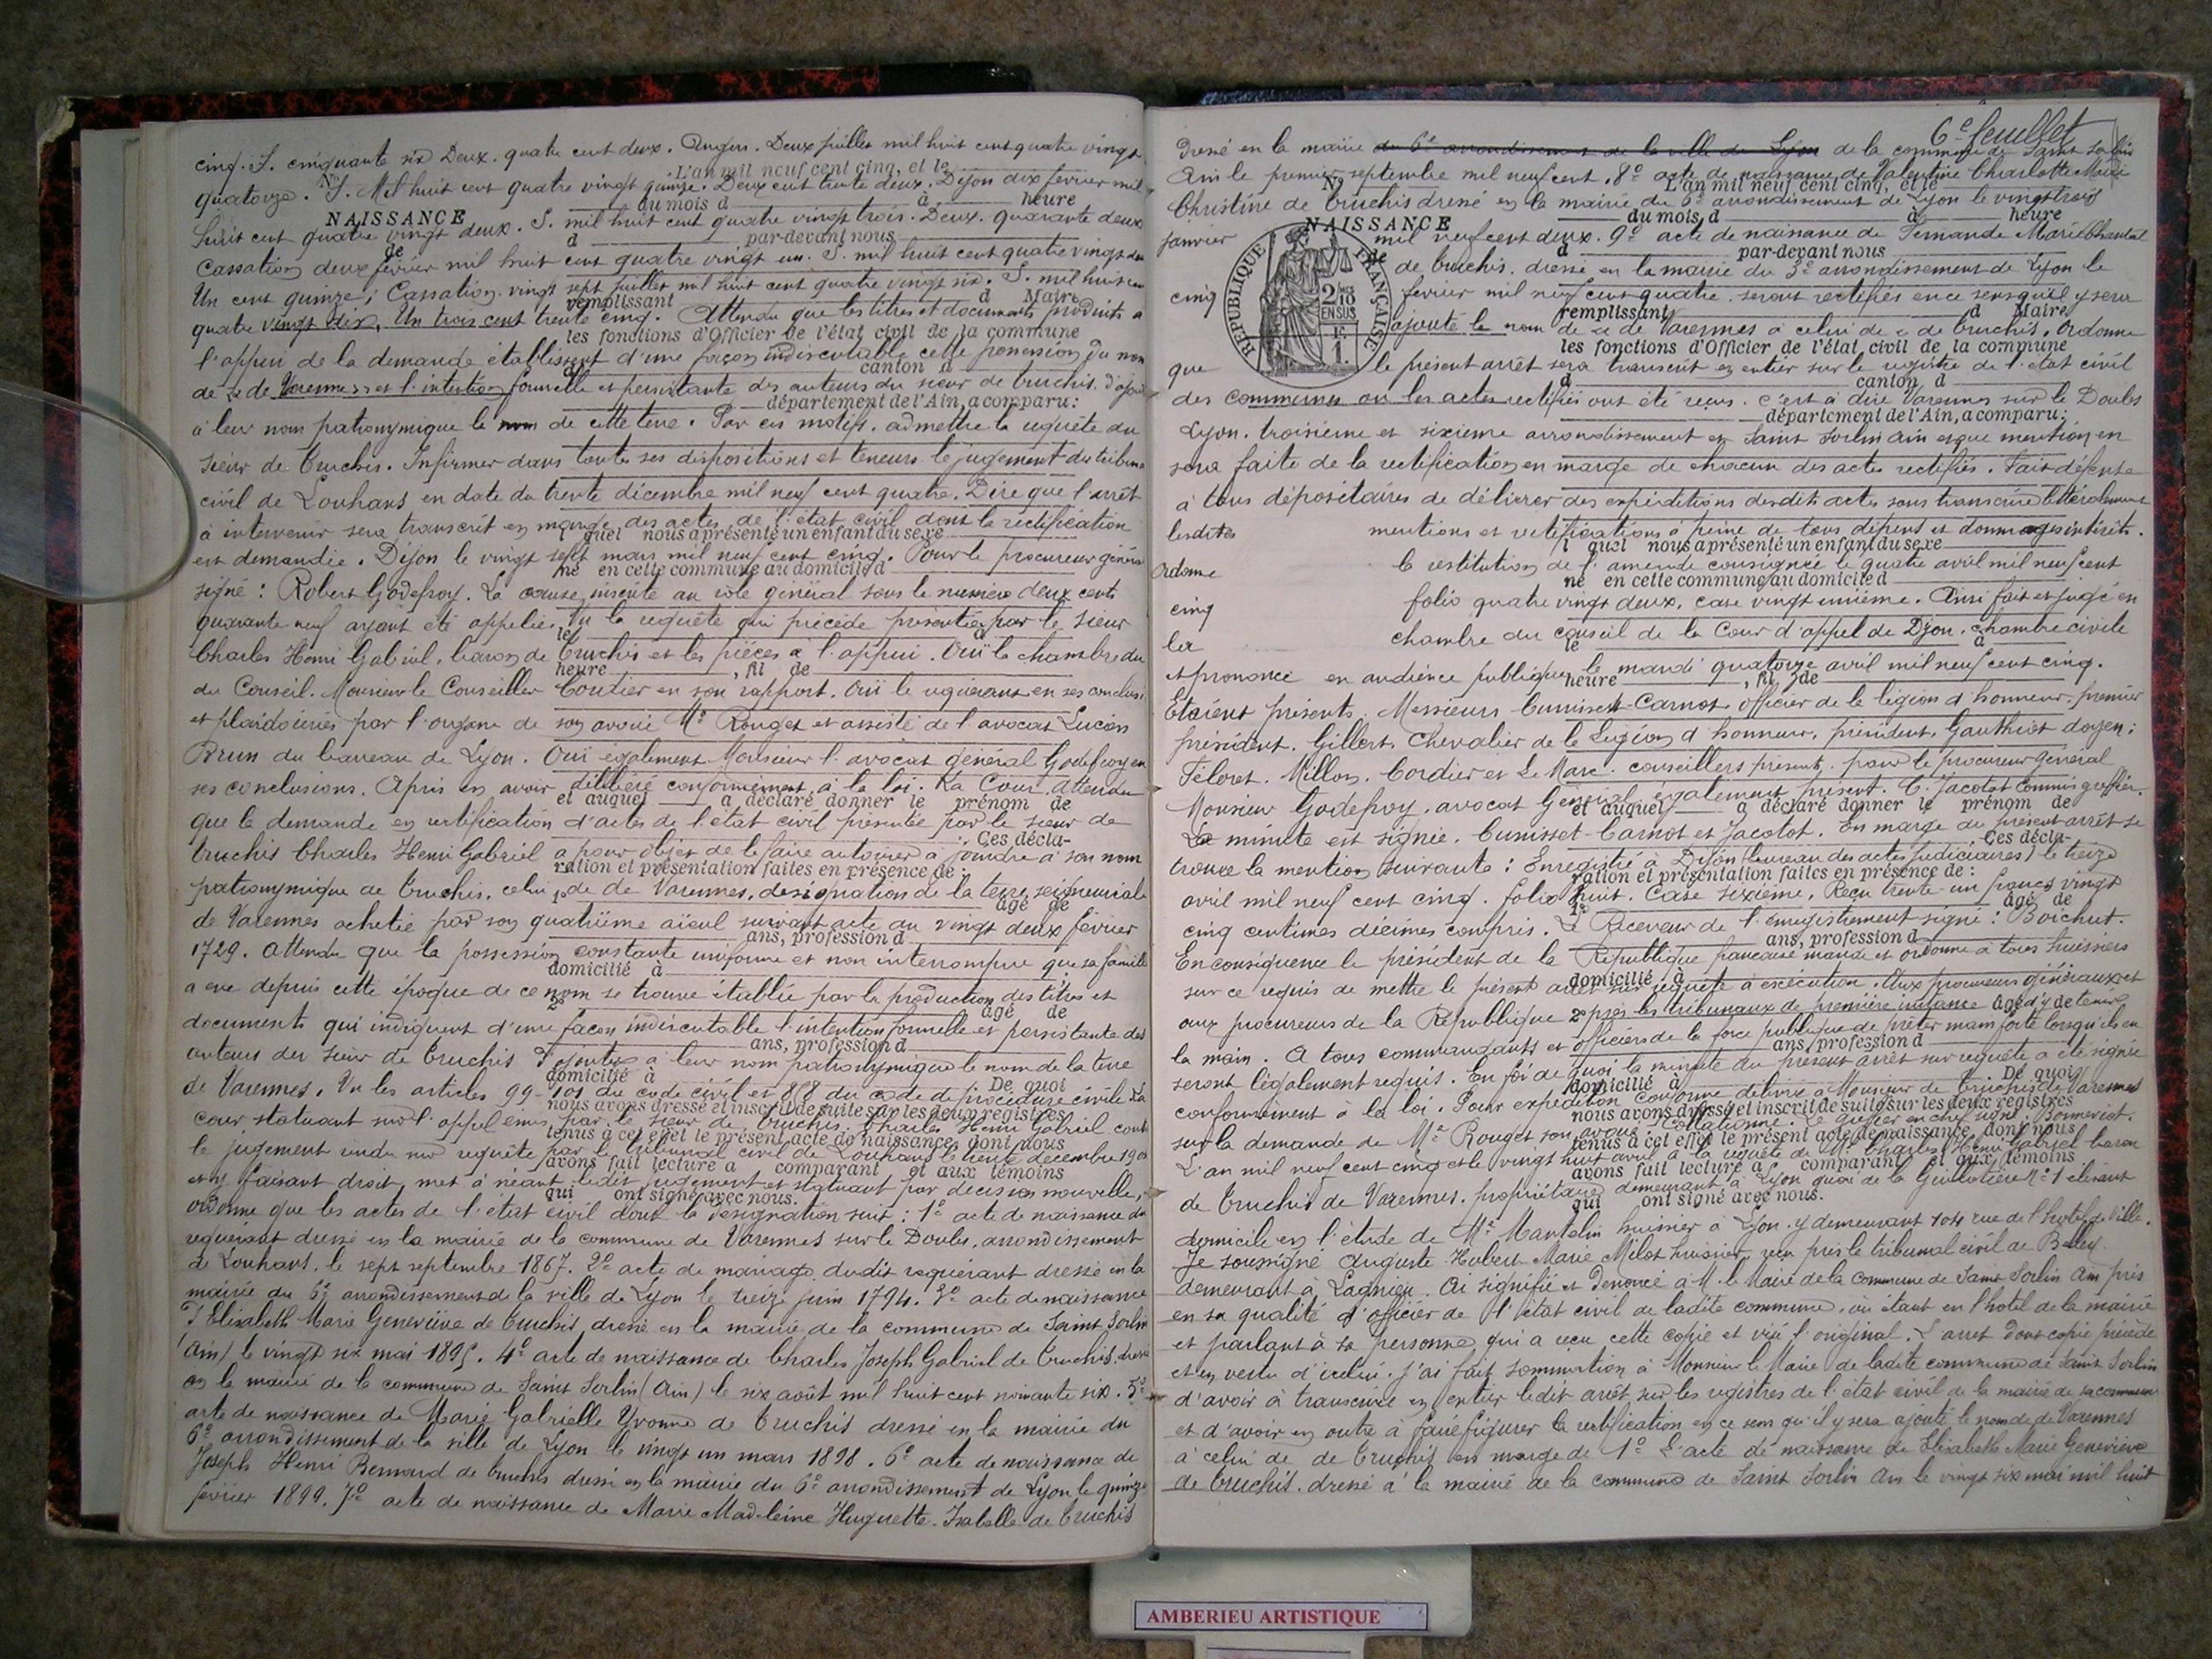 cinq. S. cinquante six Deux. quatre cent deux. Angers. Deux juillet mil huit cent quatre vingt
L'an mil neuf cent cinq, et le
quatorze. S. Mil huit cent quatre vingt quinze. Deux cent trente deux. Dijon dix février mil
du mois d à heure
NAISSANCE
huit cent quatre vingt deux. S. mil huit cent quatre vingt trois. Deux. quarante deux
d par-devant nous
de
Cassation deux février mil huit cent quatre vingt un. S. mil huit cent quatre vingt
Un cent quinze; Cassation. vingt sept juillet mil huit cent quatre vingt six. S. mil huit cent
remplissant d Maire
quatre vingt dix. Un trois cent trente cinq. Attendu que les titres et documents produits a
les fonctions d'Officier de l'état civil de la commune
l'appui de la demande établissent d'une façon indiscutable cette possession du nom
d canton d
de de Varennes et l'intention formelle et persistante des auteurs du sieur de Truchis d'ajou
département de l'Ain, a comparu:
à leur nom patronymique le nom de cette terre. Par ces motifs. admettre la requête du
sieur de Truchis. Infirmer dans toutes ses dispositions et teneurs le jugement du tribunal
civil de Louhans en date du trente décembre mil neuf cent quatre. Dire que l'arrêt
à intervenir sera transcrit en marge des actes de l'état civil dont la rectification
l quel nous a présenté un enfant du sexe
est demandée. Dijon le vingt sept mars mil neuf cent cinq. Pour le procureur général
né en cette commune au domicile d
signé: Robert Godefroy. La cause inscrite au role général sous le numéro deux cent
quarante neuf ayant été appelée. Vu la requête qui précède présentée par le sieur
le à
Charles Henri Gabriel, baron de Truchis et les pièces à l'appui. Ouï la chambre du
heure , fil de
du Conseil. Monsieur le Conseiller Cordier en son rapport. Ouï le requérant en ses conclusi
et plaidoieries par l'organe de son avoué Me Rouget et assisté de l'avocat Lucien
Brun du barreau de Lyon. Ouï également Monsieur l'avocat général Godefroy en
ses conclusions. Après en avoir délibéré conformément à la loi. La Cour. Attendu
et auquel a déclaré donner le prénom de
que la demande en rectification d'actes de l'état civil présentée par le sieur de
Ces décla-
Truchis Charles Henri Gabriel a pour objet de le faire autoriser à joindre à son nom
ration et présentation faites en présence de:
patronymique de Truchis, celui de de Varennes, désignation de la terre seigneuriale
1o âgé de
de Varennes achetée par son quatrième aïeul suivant acte du vingt deux février
ans, profession d
1729. Attendu que la possession constante uniforme et non interrompue que sa famille
domicilié à
a eue depuis cette époque de ce nom se trouve établie par la production des titres et
2o âgé de
documents qui indiquent d'une façon indiscutable l'intention formelle et persistante des
ans, profession d
auteurs du sieur de Truchis d'ajouter à leur nom patronymique le nom de la terre
domicilié à De quoi
de Varennes. Vu les articles 99-101 du code civil et 858 du code de procédure civile La
nous avons dressé et inscrit de suite sur les deux registres
cour statuant sur l'appel émis par le sieur de Truchis Charles Henri Gabriel contre
tenus à cet effet le présent acte de naissance, dont nous
le jugement rendu sur requête par le tribunal civil de Louhans le trente décembre 190
avons fait lecture a comparant et aux témoins
et y faisant droit, met à néant ledit jugement et statuant par décision nouvelle,
qui ont signé avec nous.
ordonne que les actes de l'état civil dont la désignation suit: 1o acte de naissance du
requérant dressé en la mairie de la commune de Varennes sur le Doubs, arrondissement
de Louhans. le sept septembre 1867. 2o acte de mariage dudit requérant dressé en la
mairie du 6e arrondissement de la ville de Lyon le treize juin 1794. 3o acte de naissance
d'Elisabeth Marie Geneviève de Truchis dressé en la mairie de la commune de Saint Sorlin
(Ain) le vingt six mai 1895. 4o acte de naissance de Charles Joseph Gabriel de Truchis. dressé
en la mairie de la commune de Saint Sorlin (Ain) le six août mil huit cent nonante six. 5o
acte de naissance de Marie Gabrielle Yvonne de Truchis dressé en la mairie du
6e arrondissement de la ville de Lyon le vingt un mars 1898. 6o acte de naissance de
Joseph Henri Bernard de Truchis dressé en la mairie du 6e arrondissement de Lyon le quinze
février 1899. 7o acte de naissance de Marie Madeleine Huguette Isabelle de Truchis
6e feuillet
dressé en la mairie du 6e arrondissement de la ville de Lyon de la commune de Saint Sorlin
Ain le premier septembre mil neuf cent. 8o acte de naissance de Valentine Charlotte Marie
No L'an mil neuf cent cinq, et le
Christine de Truchis dressé en la mairie du 6e arrondissement de Lyon le vingt trois
du mois d à heure
NAISSANCE
janvier mil neuf cent deux. 9o acte de naissance de Fernande Marie Chantal
d par-devant nous
de
de Truchis. dressé en la mairie du 3e arrondissement de Lyon le
RÉPUBLIQUE FRANÇAISE
2/10 EN SUS
F. 1.
cinq février mil neuf cent quatre. seront rectifiés en ce sens qu'il y sera
remplissant d Maire
ajouté le nom de de Varennes à celui de de Truchis. Ordonne
les fonctions d'Officier de l'état civil de la commune
que le présent arrêt sera transcrit en entier sur le registre de l'état civil
d canton d
des communes où les actes rectifiés ont été reçus. c'est à dire Varennes sur le Doubs
département de l'Ain, a comparu:
Lyon. troisième et sixième arrondissement et Saint Sorlin Ain et que mention en
sera faite de la rectification en marge de chacun des actes rectifiés. Fait défense
à tous dépositaires de délivrer des expéditions desdits actes sans transcrire littéralement
lesdites mentions et rectifications à peine de tous dépens et dommages intérêts.
l quel nous a présenté un enfant du sexe
Ordonne la restitution de l'amende consignée le quatre avril mil neuf cent
né en cette commune au domicile d
cinq folio quatre vingt deux, case vingt unième. Ainsi fait et jugé en
la chambre du conseil de la Cour d'appel de Dijon. chambre civile
le à
et prononcé en audience publique le mardi quatorze avril mil neuf cent cinq.
heure , fil de
Etaient présents. Messieurs Cunisset-Carnot officier de la légion d'honneur, premier
président. Gillert, Chevalier de la Légion d'honneur, président, Gauthiot doyen;
Millon. Cordier et Le Marc. conseillers présents. pour le procureur général
Monsieur Godefroy, avocat Général, également présent. C. Jacotot commis greffier.
et auquel a déclaré donner le prénom de
La minute est signée. Cunisset-Carnot et Jacotot. En marge du présent arrêt se
Ces décla-
trouve la mention suivante: Enregistré à Dijon (bureau des actes judiciaires) le treize
ration et présentation faites en présence de:
avril mil neuf cent cinq. folio huit. Case sixième. Reçu trente un francs vingt
1o âgé de
cinq centimes décimes compris. Le Receveur de l'enregistrement signé: Boichut.
ans, profession d
En conséquence le président de la République française mande et ordonne à tous huissiers
domicilié à
sur ce requis de mettre le présent arrêt sur requête à exécution. Aux procureurs généraux et
aux procureurs de la République près les tribunaux de première instance d'y tenir
2o âgé de
la main. A tous commandants et officiers de la force publique de prêter main forte lorsqu'ils en
ans, profession d
seront légalement requis. En foi de quoi la minute du présent arrêt sur requête a été signée
domicilié à De quoi
conformément à la loi. Pour expédition conforme délivrée à Monsieur de Truchis de Varennes
nous avons dressé et inscrit de suite sur les deux registres
sur la demande de Me Rouget son avoué. Collationné. Le greffier en chef signé: Bonneviot.
tenus à cet effet le présent acte de naissance, dont nous
L'an mil neuf cent cinq et le vingt huit avril à la requête de Mr Charles Henri Gabriel baron
avons fait lecture a comparant et aux témoins
de Truchis de Varennes. propriétaire demeurant à Lyon quai de la Guillotière no 1 élisant
qui ont signé avec nous.
domicile en l'étude de Me Mantelin huissier à Lyon. y demeurant 104 rue de l'hotel de Ville.
Je soussigné Auguste Hubert Marie Milet huissier, reçu près le tribunal civil de Belley
demeurant à Lagnieu. Ai signifié et dénoncé à M. le Maire de la commune de Saint Sorlin Ain pris
en sa qualité d'officier de l'état civil de ladite commune. où étant en l'hotel de la mairie
et parlant à sa personne qui a reçu cette copie et visé l'original. L'arrêt dont copie précède
et en vertu d'icelui. j'ai fait sommation à Monsieur le Maire de ladite commune de Saint Sorlin
d'avoir à transcrire en entier ledit arrêt sur les registres de l'état civil de la mairie de sa commune
et d'avoir en outre à faire figurer la rectification en ce sens qu'il y sera ajouté le nom de de Varennes
à celui de de Truchis en marge de 1o L'acte de naissance de Elisabeth Marie Geneviève
de Truchis. dressé à la mairie de la commune de Saint Sorlin Ain le vingt six mai mil huit
AMBERIEU ARTISTIQUE